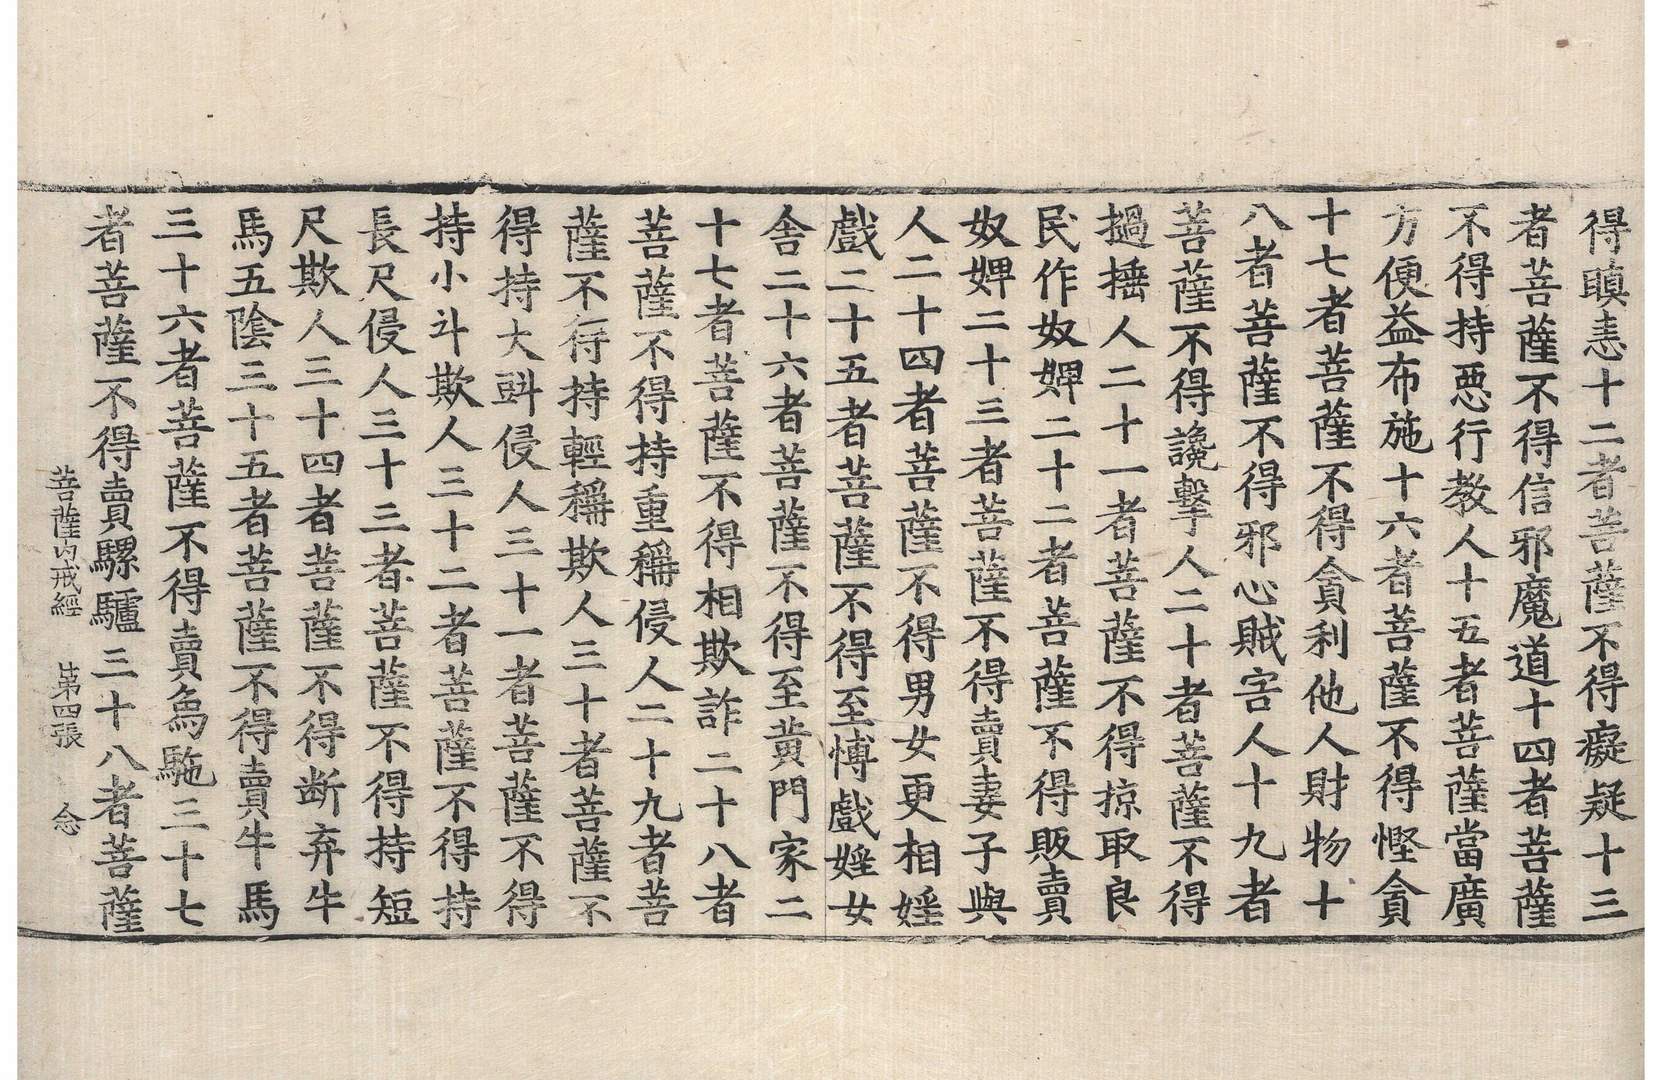 得瞋恚十二者菩薩不得癡疑十三
者菩薩不得信邪魔道十四者菩薩
不得持惡行教人十五者菩薩當廣
方便益布施十六者菩薩不得慳貪
十七者菩薩不得貪利他人財物十
八者菩薩不得邪心賊害人十九者
菩薩不得讒擊人二十者菩薩不得
撾捶人二十一者菩薩不得掠取良
民作奴婢二十二者菩薩不得販賣
奴婢二十三者菩薩不得賣妻子與
人二十四者菩薩不得男女更相婬
戲二十五者菩薩不得至博戲婬女
舍二十六者菩薩不得至黃門家二
十七者菩薩不得相欺詐二十八者
菩薩不得持重稱侵人二十九者菩
薩不得持輕稱欺人三十者菩薩不
得持大㪷侵人三十一者菩薩不得
持小斗欺人三十二者菩薩不得持
長尺侵人三十三者菩薩不得持短
尺欺人三十四者菩薩不得断弃牛
馬五陰三十五者菩薩不得賣牛馬
三十六者菩薩不得賣象駞三十七
者菩薩不得賣騾驢三十八者菩薩
菩薩内戒經 苐四張 念